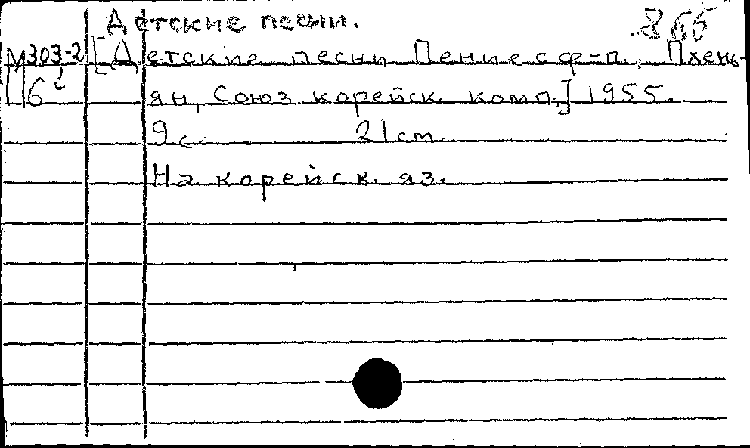 Детские песни. 866
М303-2 [Детские песни Пение с ф-п. Пхень-
П6 ян, Союз корейск. комп.] 1955.
9 с. 21 см
На корейск. яз.